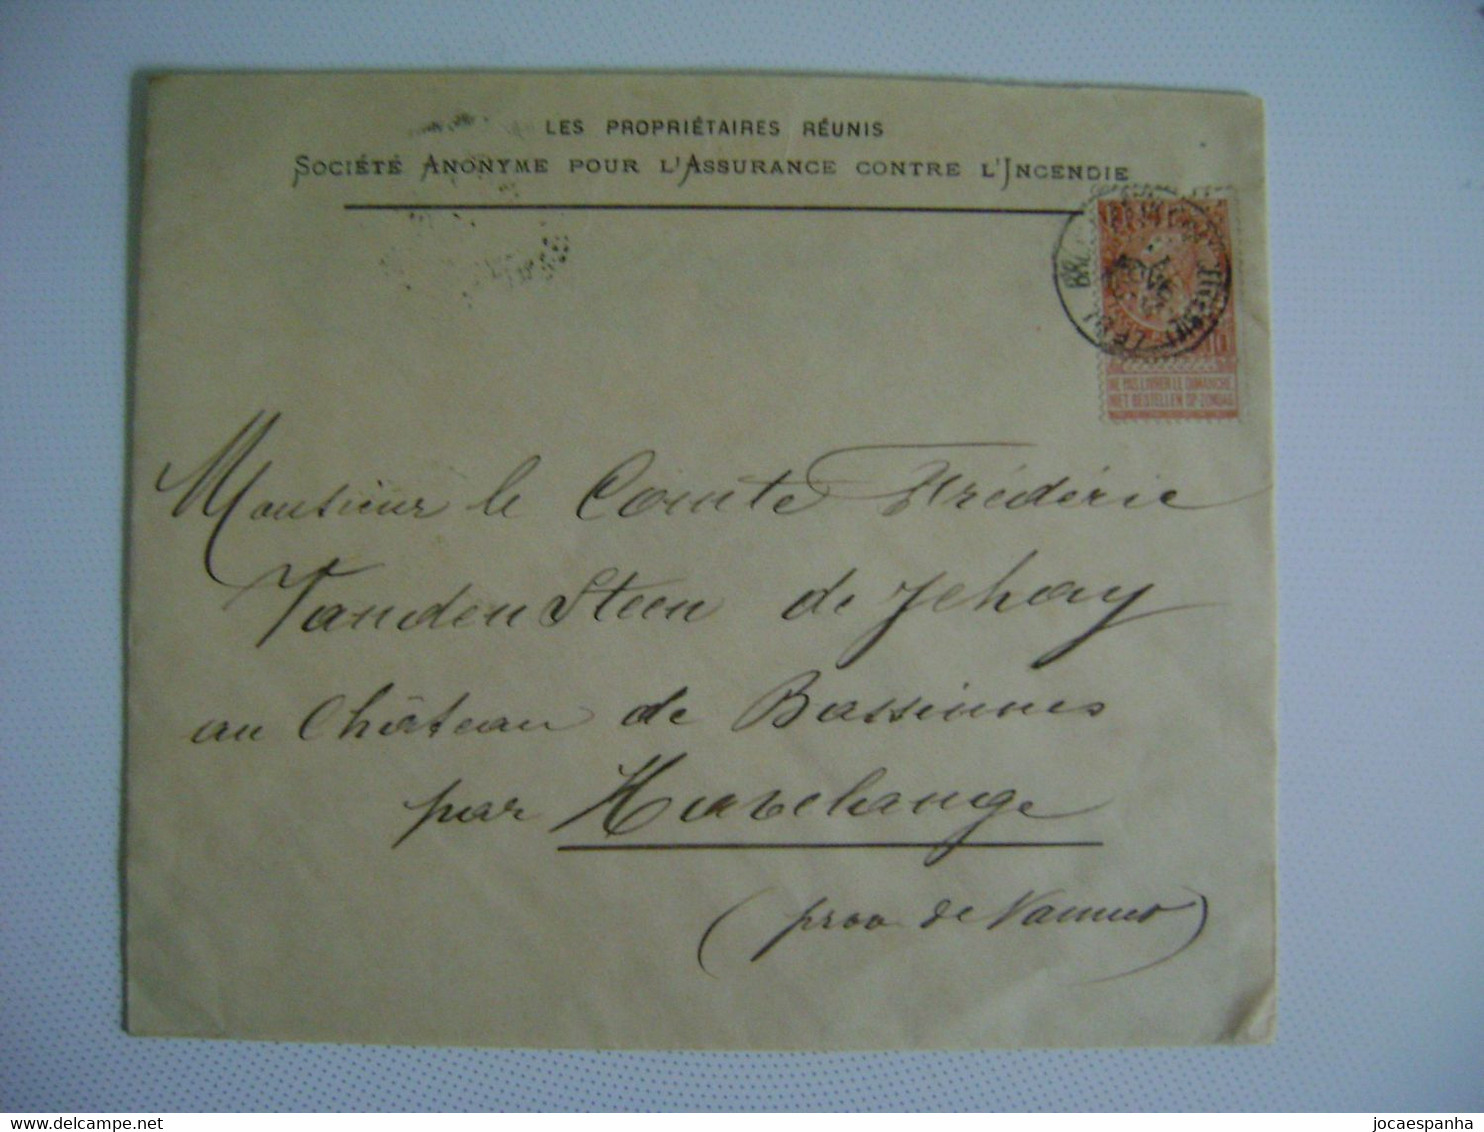 LES PROPRIÉTAIRES RÉUNIS
SOCIÉTÉ ANONYME POUR L'ASSURANCE CONTRE L'INCENDIE
10
NE PAS LIVRER LE DIMANCHE
NIET BESTELLEN OP ZONDAG
Monsieur le Comte Frédéric
Vanden Steen de Jehay
au Château de Bassinnes
par Havelange
(prov de Namur)
delcampe.net
jocaespanha